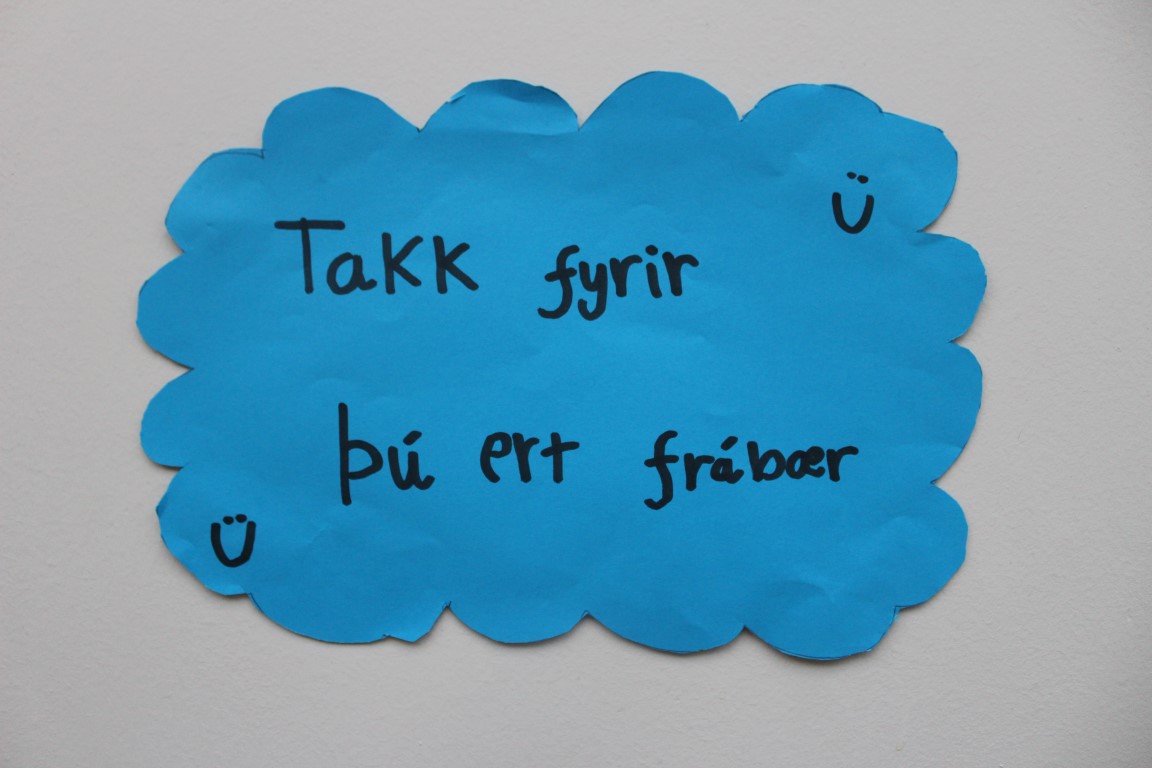 Takk fyrir
Þú ert frábær